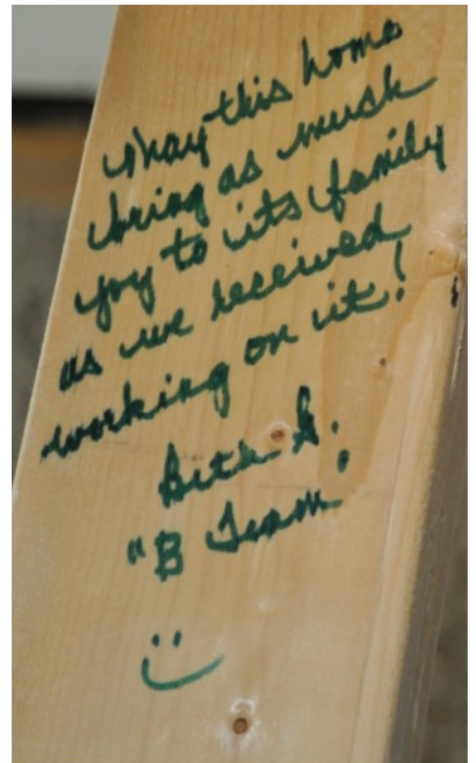 may this home
bring as much
joy to its family
as we received
working on it!
Beth S.
"B Team"